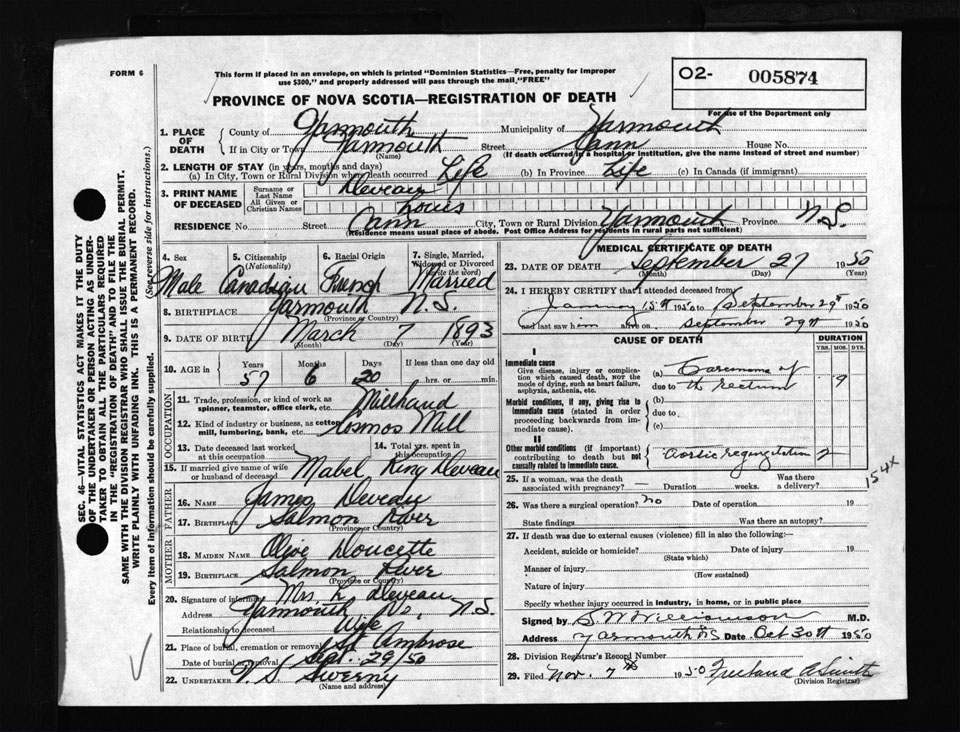 FORM 6
This form if placed in an envelope, on which is printed "Dominion Statistics—Free, penalty for improper
use $300," and properly addressed will pass through the mail. "FREE"
O2- 005874
For use of the Department only
PROVINCE OF NOVA SCOTIA—REGISTRATION OF DEATH
1. PLACE OF DEATH County of Yarmouth Municipality of Yarmouth
If in City or Town Yarmouth Street Cann House No.
(Name) (If death occurred in a hospital or institution, give the name instead of street and number)
2. LENGTH OF STAY (in years, months and days)
(a) In City, Town or Rural Division where death occurred Life (b) In Province Life (c) In Canada (if immigrant)
3. PRINT NAME OF DECEASED Surname or Last Name Deveau
All Given or Christian Names Louis
RESIDENCE No. Street Cann City, Town or Rural Division Yarmouth Province N.S.
(Residence means usual place of abode. Post Office Address for residents in rural parts not sufficient)
4. Sex 5. Citizenship (Nationality) 6. Racial Origin 7. Single, Married, Widowed or Divorced (Write the word)
Male Canadian French Married
8. BIRTHPLACE Yarmouth N.S.
(Province or Country)
9. DATE OF BIRTH March 7 1893
(Month) (Day) (Year)
10. AGE in Years Months Days If less than one day old
57 6 20 hrs. or min.
OCCUPATION
11. Trade, profession, or kind of work as spinner, teamster, office clerk, etc. Millhand
12. Kind of industry or business, as cotton mill, lumbering, bank, etc. Kosmos Mill
13. Date deceased last worked at this occupation 14. Total yrs. spent in this occupation
15. If married give name of wife or husband of deceased Mabel King Deveau
FATHER
16. Name James Deveau
17. Birthplace Salmon River
(Province or Country)
MOTHER
18. Maiden Name Olive Doucette
19. Birthplace Salmon River
(Province or Country)
20. Signature of informant Mrs L Deveau
Address Yarmouth N.S.
Relationship to deceased Wife
21. Place of burial, cremation or removal St Ambrose
Date of burial or removal Sept. 29/50
22. UNDERTAKER V S Sweeny
(Name and address)
MEDICAL CERTIFICATE OF DEATH
23. DATE OF DEATH September 27 1950
(Month) (Day) (Year)
24. I HEREBY CERTIFY that I attended deceased from
January 15th 1950 to September 29th 1950
and last saw him alive on September 29th 1950
CAUSE OF DEATH DURATION
YRS. MOS. DYS.
I
Immediate cause
Give disease, injury or complication which caused death, NOT the mode of dying, such as heart failure, asphyxia, asthenia, etc.
(a) Carcinoma of
due to the rectum 9
Morbid conditions, if any, giving rise to immediate cause (stated in order proceeding backwards from immediate cause).
(b)
due to
(c)
II
Other morbid conditions (if important) contributing to death but not causally related to immediate cause.
Aortic regurgitation 2
154x
25. If a woman, was the death associated with pregnancy? — Duration weeks. Was there a delivery?
26. Was there a surgical operation? No Date of operation 19
State findings Was there an autopsy?
27. If death was due to external causes (violence) fill in also the following:—
Accident, suicide or homicide? Date of injury 19
(State which)
Manner of injury
(How sustained)
Nature of injury
Specify whether injury occurred in industry, in home, or in public place
Signed by S. W. Williamson M.D.
Address Yarmouth NS Date Oct 30th 1950
28. Division Registrar's Record Number
29. Filed Nov. 7th 1950 Freeland A Smith
(Division Registrar)
SEC. 46—VITAL STATISTICS ACT MAKES IT THE DUTY
OF THE UNDERTAKER OR PERSON ACTING AS UNDER-
TAKER TO OBTAIN ALL THE PARTICULARS REQUIRED
IN THE "REGISTRATION OF DEATH" AND TO FILE THE
SAME WITH THE DIVISION REGISTRAR WHO SHALL ISSUE THE BURIAL PERMIT.
WRITE PLAINLY WITH UNFADING INK. THIS IS A PERMANENT RECORD.
Every item of information should be carefully supplied. (See reverse side for instructions.)